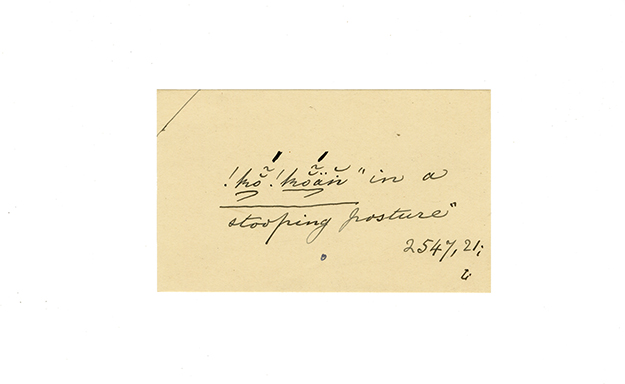 !kŏ̃́!kŏ̃́ä̆ṅ "in a
stooping posture"
2547, 21;